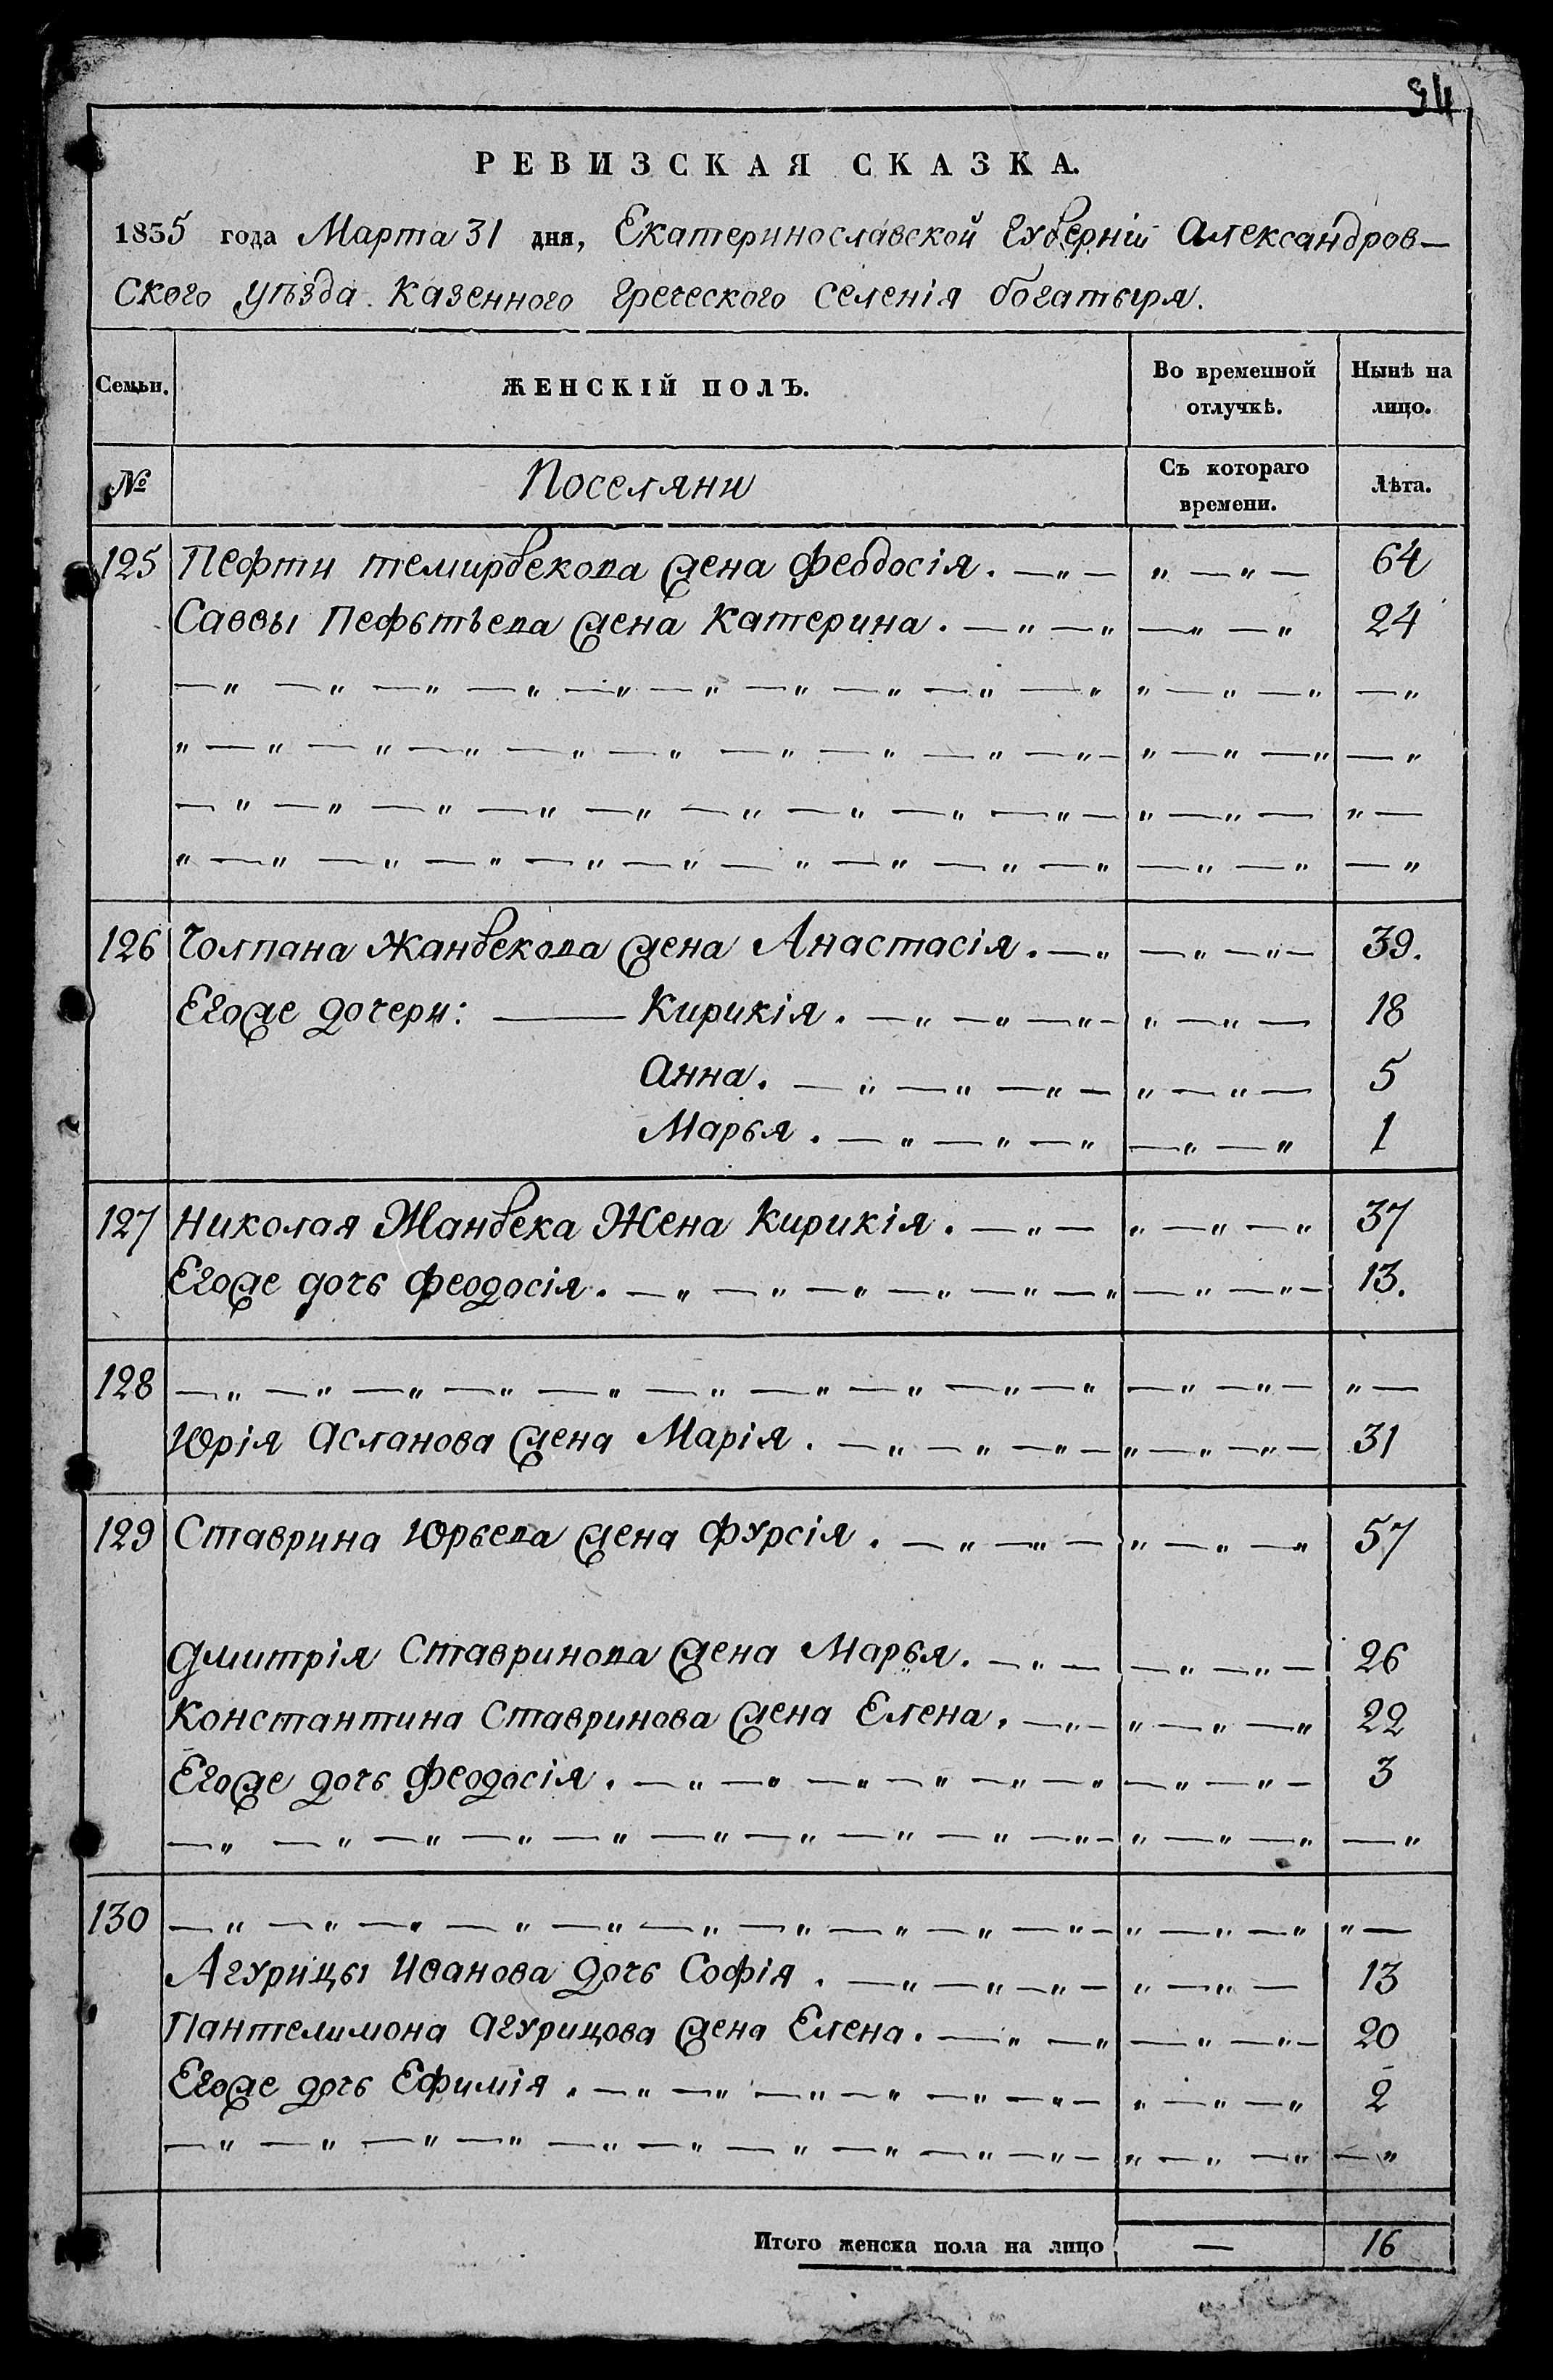 94
РЕВИЗСКАЯ СКАЗКА.
1835 года Марта 31 дня, Екатеринославской Губерніи Александров—
ского уѣзда казенного греческого селенія богатыря.
Семьи. ЖЕНСКІЙ ПОЛЪ. Во временной отлучкѣ. Нынѣ на лицо.
№ Поселяни Съ котораго времени. Лѣта.
125 Пефти темирбекова жена Феодосія. —„— „—„— 64
Саввы Пефьтьева жена Катерина. —„—„ —„—„ 24
—„—„—„—„—„—„—„—„—„—„ „—„—„ —„
„—„—„—„—„—„—„—„—„—„— „—„—„ —„
—„—„—„—„—„—„—„—„—„— „—„— „—
„—„—„—„—„—„—„—„—„—„ —„—„ —„
126 Чолпана Жанбекова жена Анастасія. —„ —„—„— 39.
Егоже дочери: — Кирикія. —„—„—„— „—„— 18
Анна. —„—„—„— „—„— 5
Марья. —„—„—„ —„—„ 1
127 Николая Жанбека Жена Кирикія. —„— „—„—„ 37
Егоже дочь Феодосія. —„—„—„—„—„—„ —„—„— 13.
128 —„—„—„—„—„—„—„—„—„—„ —„—„— „—
Юрія Асланова жена Марія. —„—„—„— „—„—„— 31
129 Ставрина Юрьева жена Фурсія. —„—„— „—„—„ 57
Дмитрія Ставринова жена Марья. —„— —„—„— 26
Константина Ставринова жена Елена. —„— „—„—„ 22
Егоже дочь Феодосія. —„—„—„—„—„—„ —„—„— 3
—„—„—„—„—„—„—„—„—„—„— „—„—„ —„
130 —„—„—„—„—„—„—„—„—„—„— „—„—„ „—
Агурицы Иванова дочь Софія. —„—„—„— „—„— 13
Пантелимона Агурицова жена Елена. —„—„ —„—„— 20
Егоже дочь Ефимія. —„—„—„—„—„—„— „—„—„ 2
—„—„—„—„—„—„—„—„—„—„— „—„—„ —„
Итого женска пола на лицо — 16